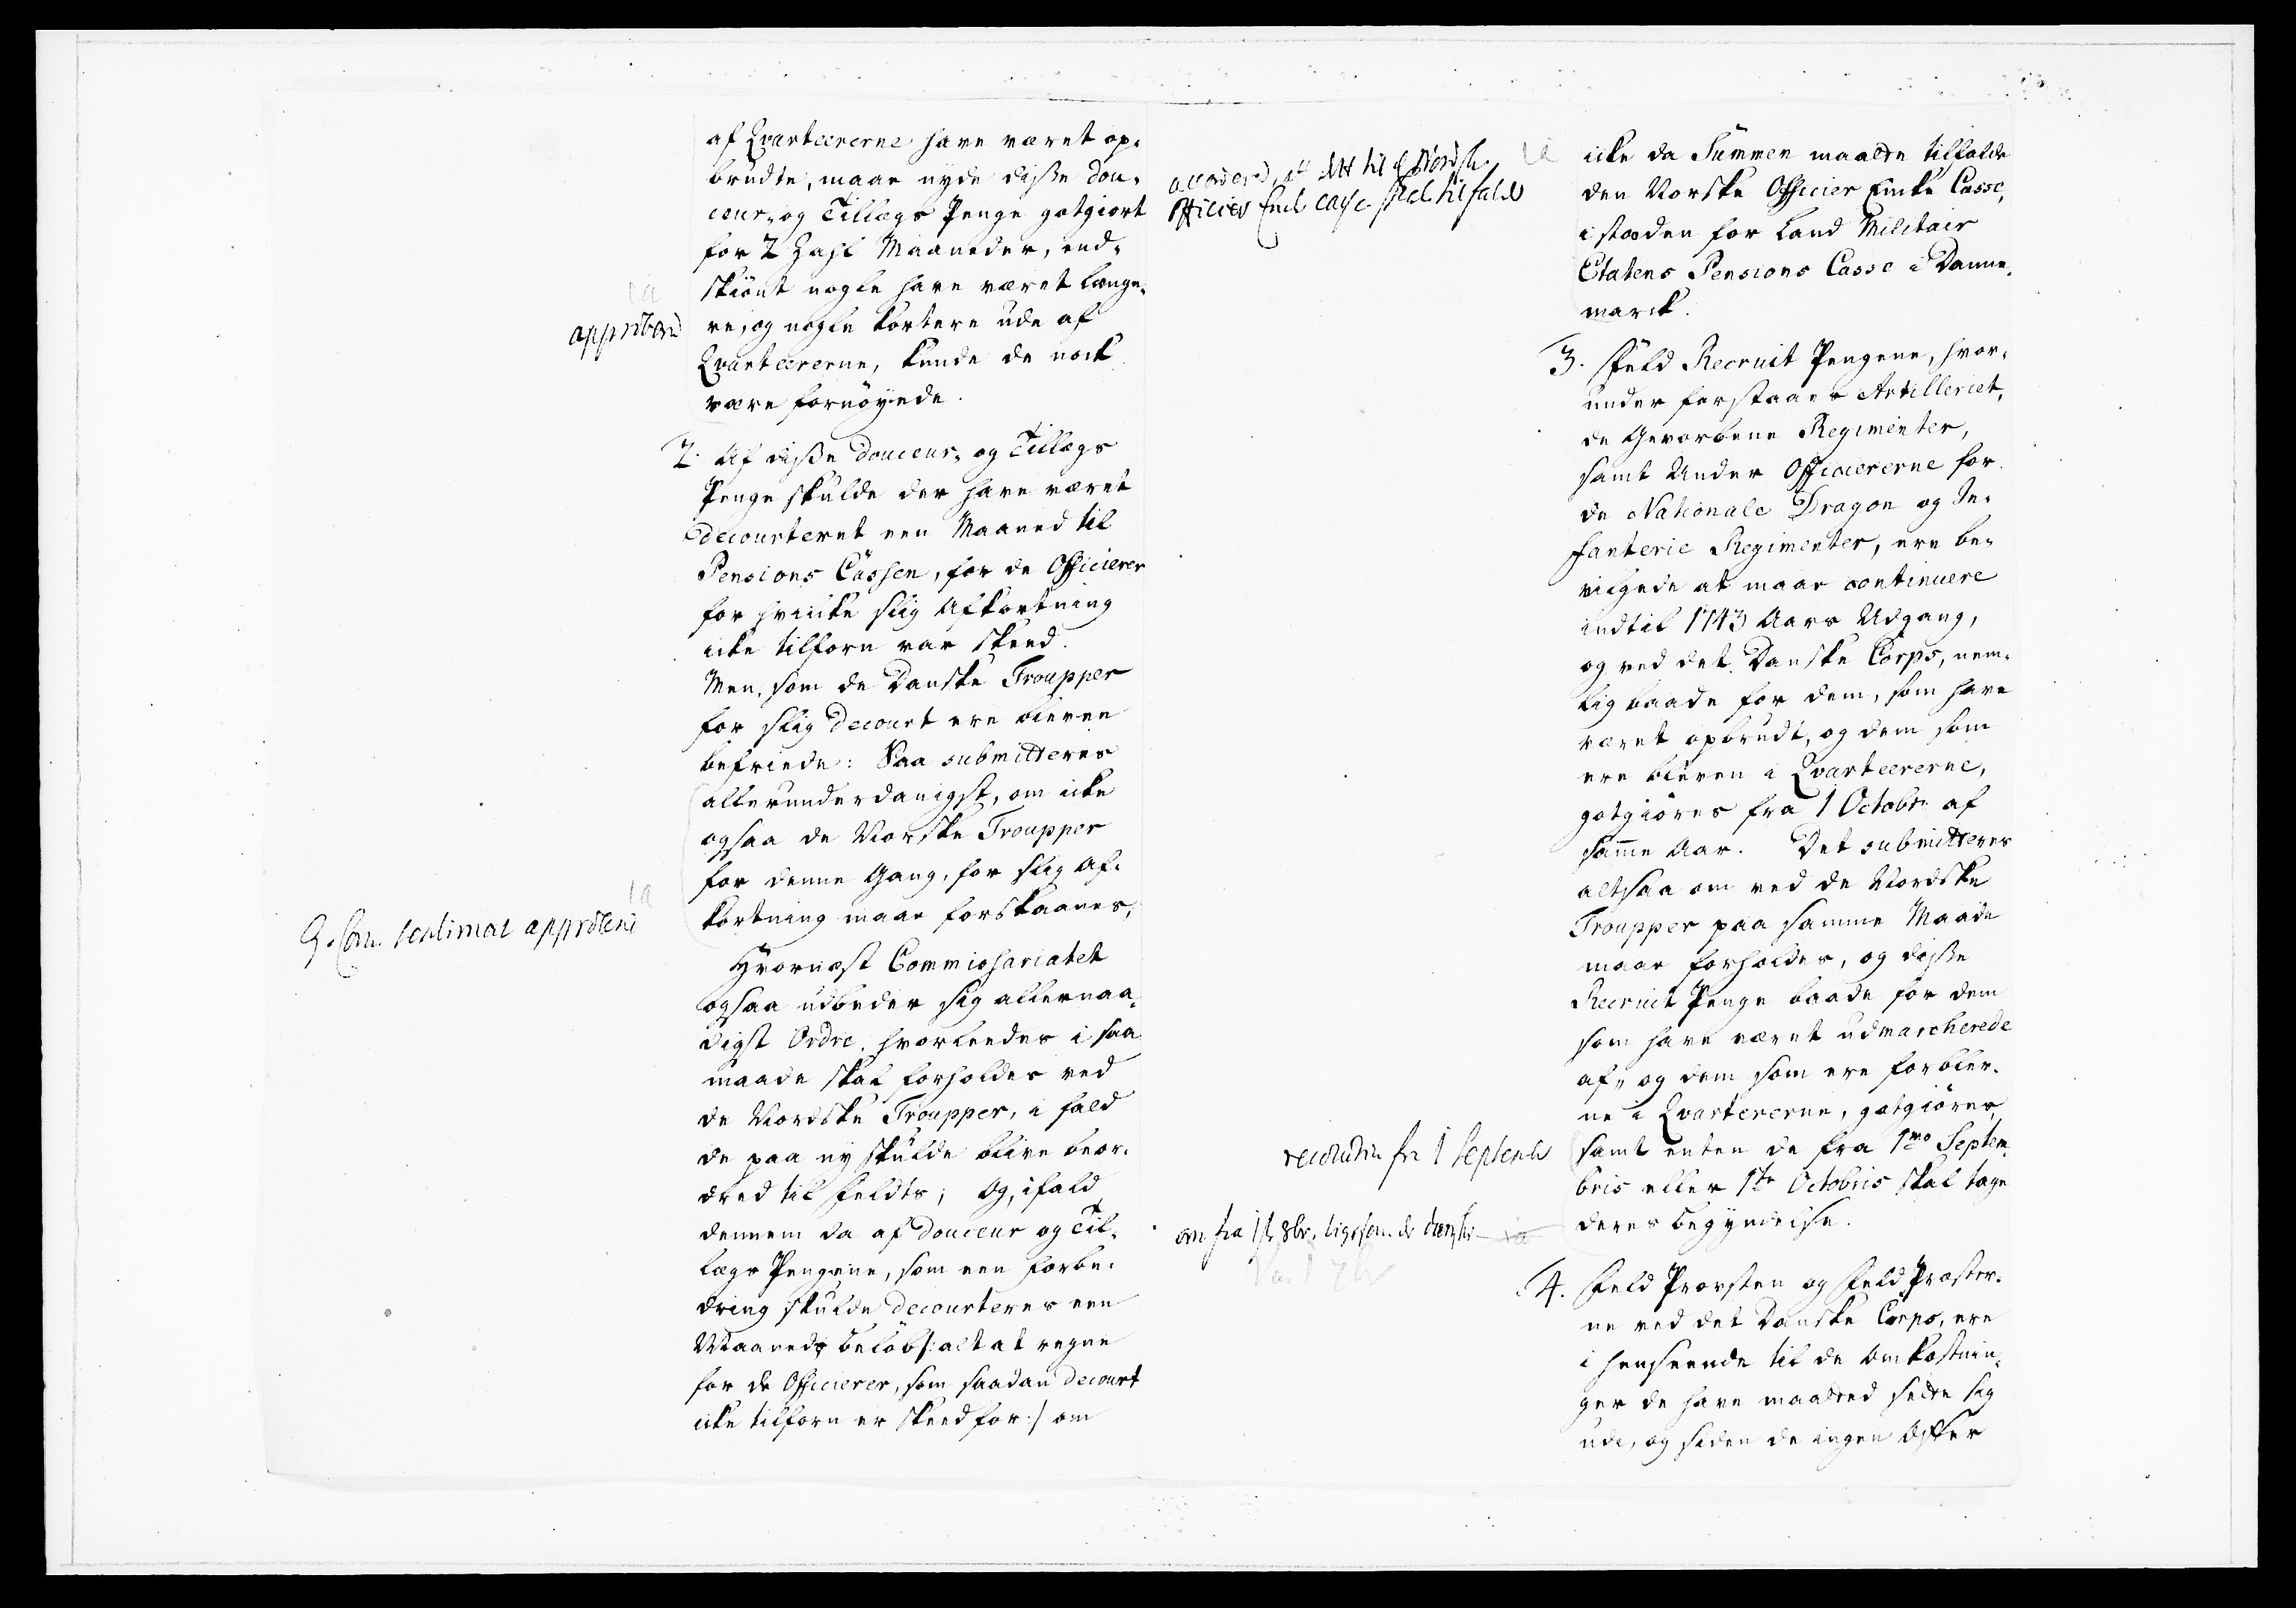 af Qvarteererne have været op-
brudte, maae nyde disse dou-
ceur- og Tillægs Penge gotgiort
for 2 Zahl Maaneder, end-
skiönt nogle have været længe-
re, og nogle kortere ude af
Qvarteererne, kunde de nock
være fornöyede.
ia
approberet
2. Af disse Douceur- og Tillægs
Penge skulde der have været
decourteret een Maaned til
Pensions Cassen, for de Officierer
for hvilke slig Afkortning
icke tilforn var skeed.
Men, som de Danske Troupper
for slig decourt ere bleven
befriede: Saa submitteres
allerunderdanigst, om icke
ogsaa de Norske Troupper
for denne Gang, for slig af-
kortning maae forskaanes,
ia
G. Com. sentiment approberet
Hvornæst Commissariatet
ogsaa udbeder sig allernaa-
digst Ordre, hvorleedes i saa
maade skal forholdes ved
de Nordske Troupper, i fald
de paa ny skulde blive beor-
dred til feldts; Og, ifald
dennem da af douceur og Til-
lægs Pengene, som een forbe-
dring skulde decourteres een
Maaneds belöb /: alt at regne
for de Officierer, som saadan decourt
icke tilforn er skeed for :/ om
accorderet, at dette til d Nordsk.
Officier Enck. casse skal tilfalde
ia
icke da Summen maatte tilfalde
den Norske Officier Encke Casse,
i stæden for Land Militair
Etatens Pensions Casse i Danne-
marck.
3. Feld Recruit Pengene, hvor-
under forstaaes Artilleriet,
de Gevorbene Regimenter,
samt Under Officiererne for
de Nationale Dragon og In-
fanterie Regimenter, ere be-
vilgede at maae continuere
indtil 1743 Aars Udgang,
og ved det Danske Corps, nem-
lig baade for dem, som have
været opbrudt, og dem som
ere bleven i Qvarteererne,
gotgiöres fra 1 Octobr. af
samme Aar. Det submitteres
altsaa om ved de Nordske
Troupper paa samme Maade
maae forholdes, og disse
Recruit Penge baade for dem
som have været udmarcherede
af, og dem som ere forblev-
ne i Qvartererne, gotgiöres,
samt enten de fra 1mo Septem-
bris eller 1ste Octobris skal tage
deres begyndelse.
fra 1 Septembr
om fra 1ste 8br. ligesom de danske
ia
4. Feld Provsten og Feld Præster-
ne ved det Danske Corps, ere
i henseende til de Omkostnin-
ger de have maatted sette sig
udi, og siden de ingen Offer